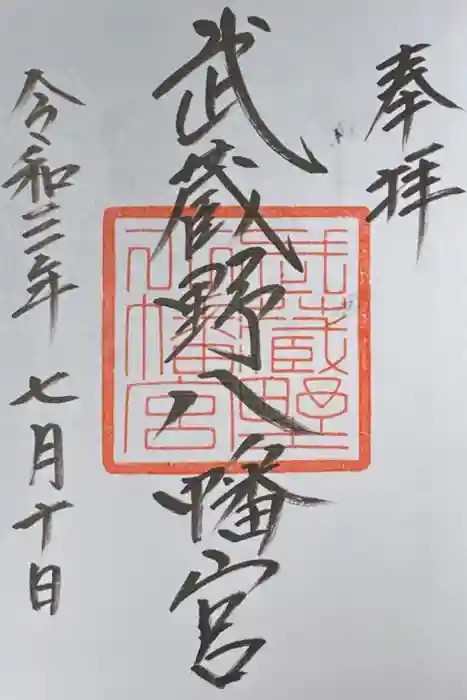 奉拝
武蔵野八幡宮
武蔵野
八幡宮
令和三年七月十日